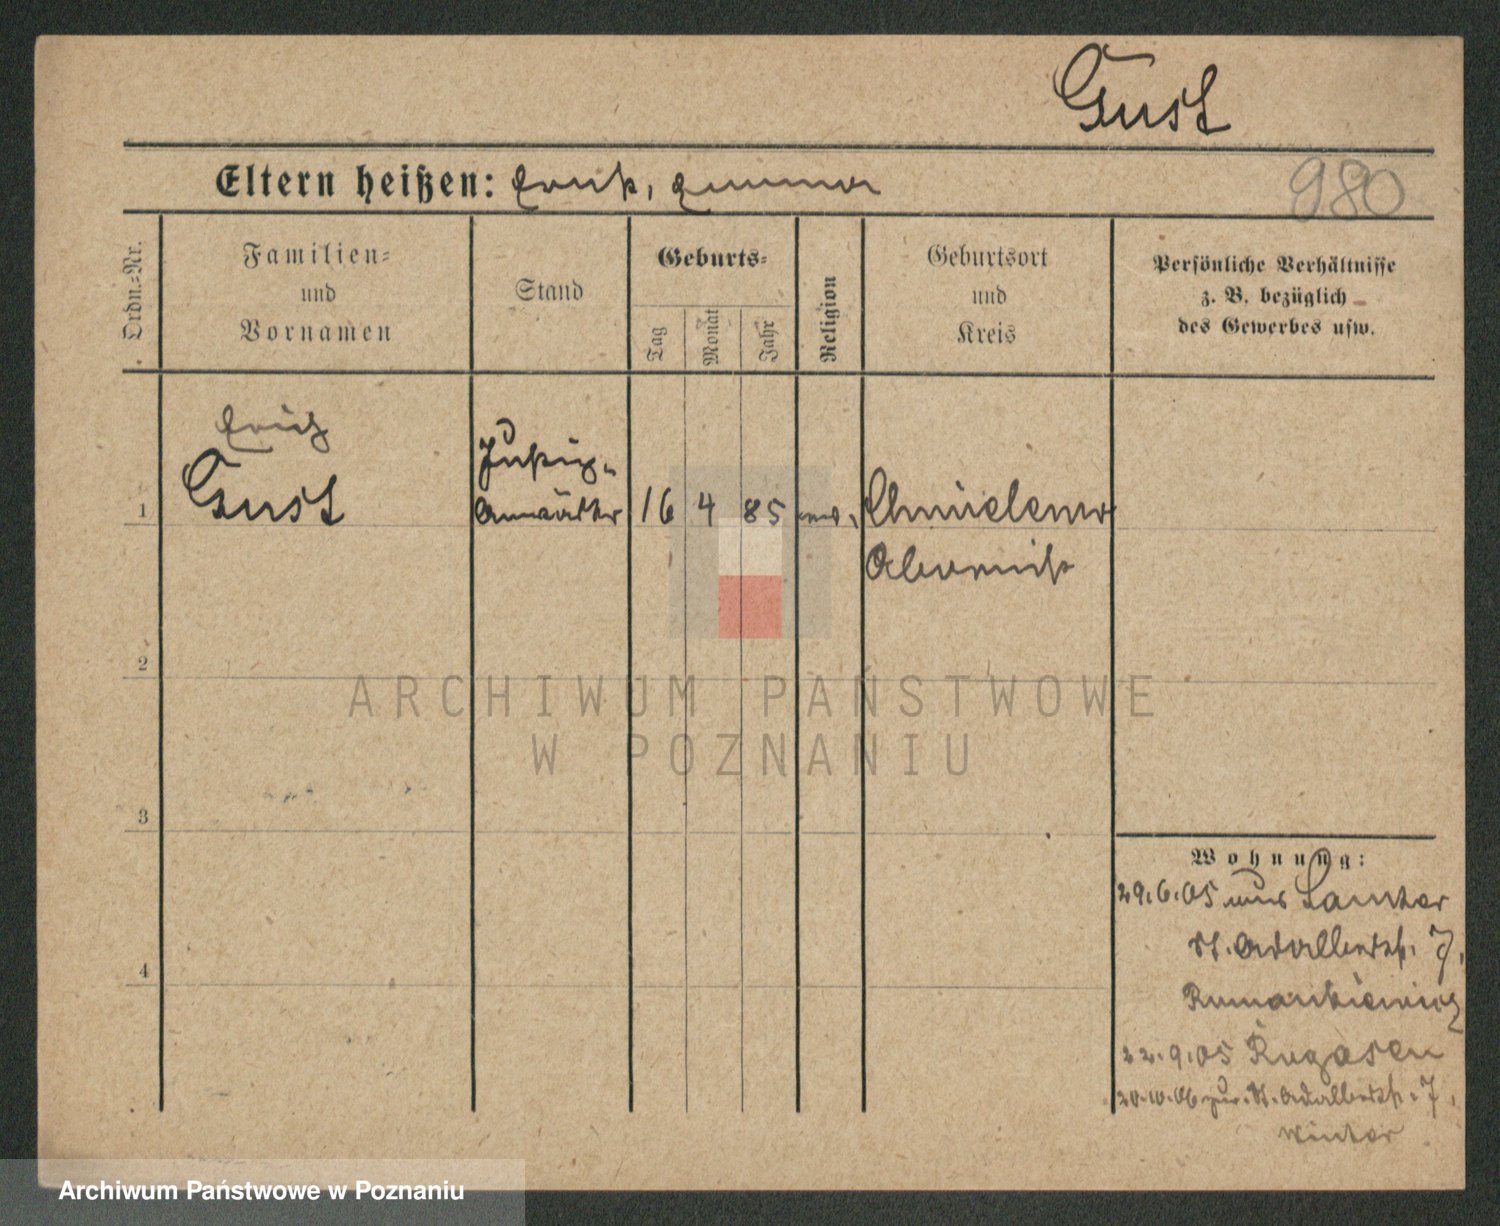 Gust
Eltern heißen: Ernst,
980
Ordn.-Nr.
Familien-
und
Vornamen
Stand
Geburts-
Tag
Monat
Jahr
Religion
Geburtsort
und
Kreis
Persönliche Verhältnisse
z. B. bezüglich
des Gewerbes usw.
Erich
Gust
Justiz-
Anwärter
1
16 4 85
Chmielenw
Obornik
2
ARCHIWUM PAŃSTWOWE
W POZNANIU
3
Wohnung:
29.6.05 aus
St. Adalbertstr. 7,
Romankiewicz
22.9.05 Rogasen
20.10.06 zur. St. Adalbertstr. 7,
Winter
4
Archiwum Państwowe w Poznaniu